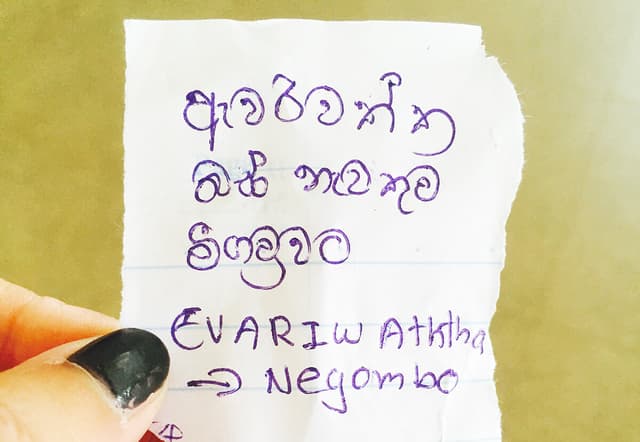 ඇවරිවත්ත
බස් නැවතුම
මීගමුවට
EVARIWAtktha
→ Negombo